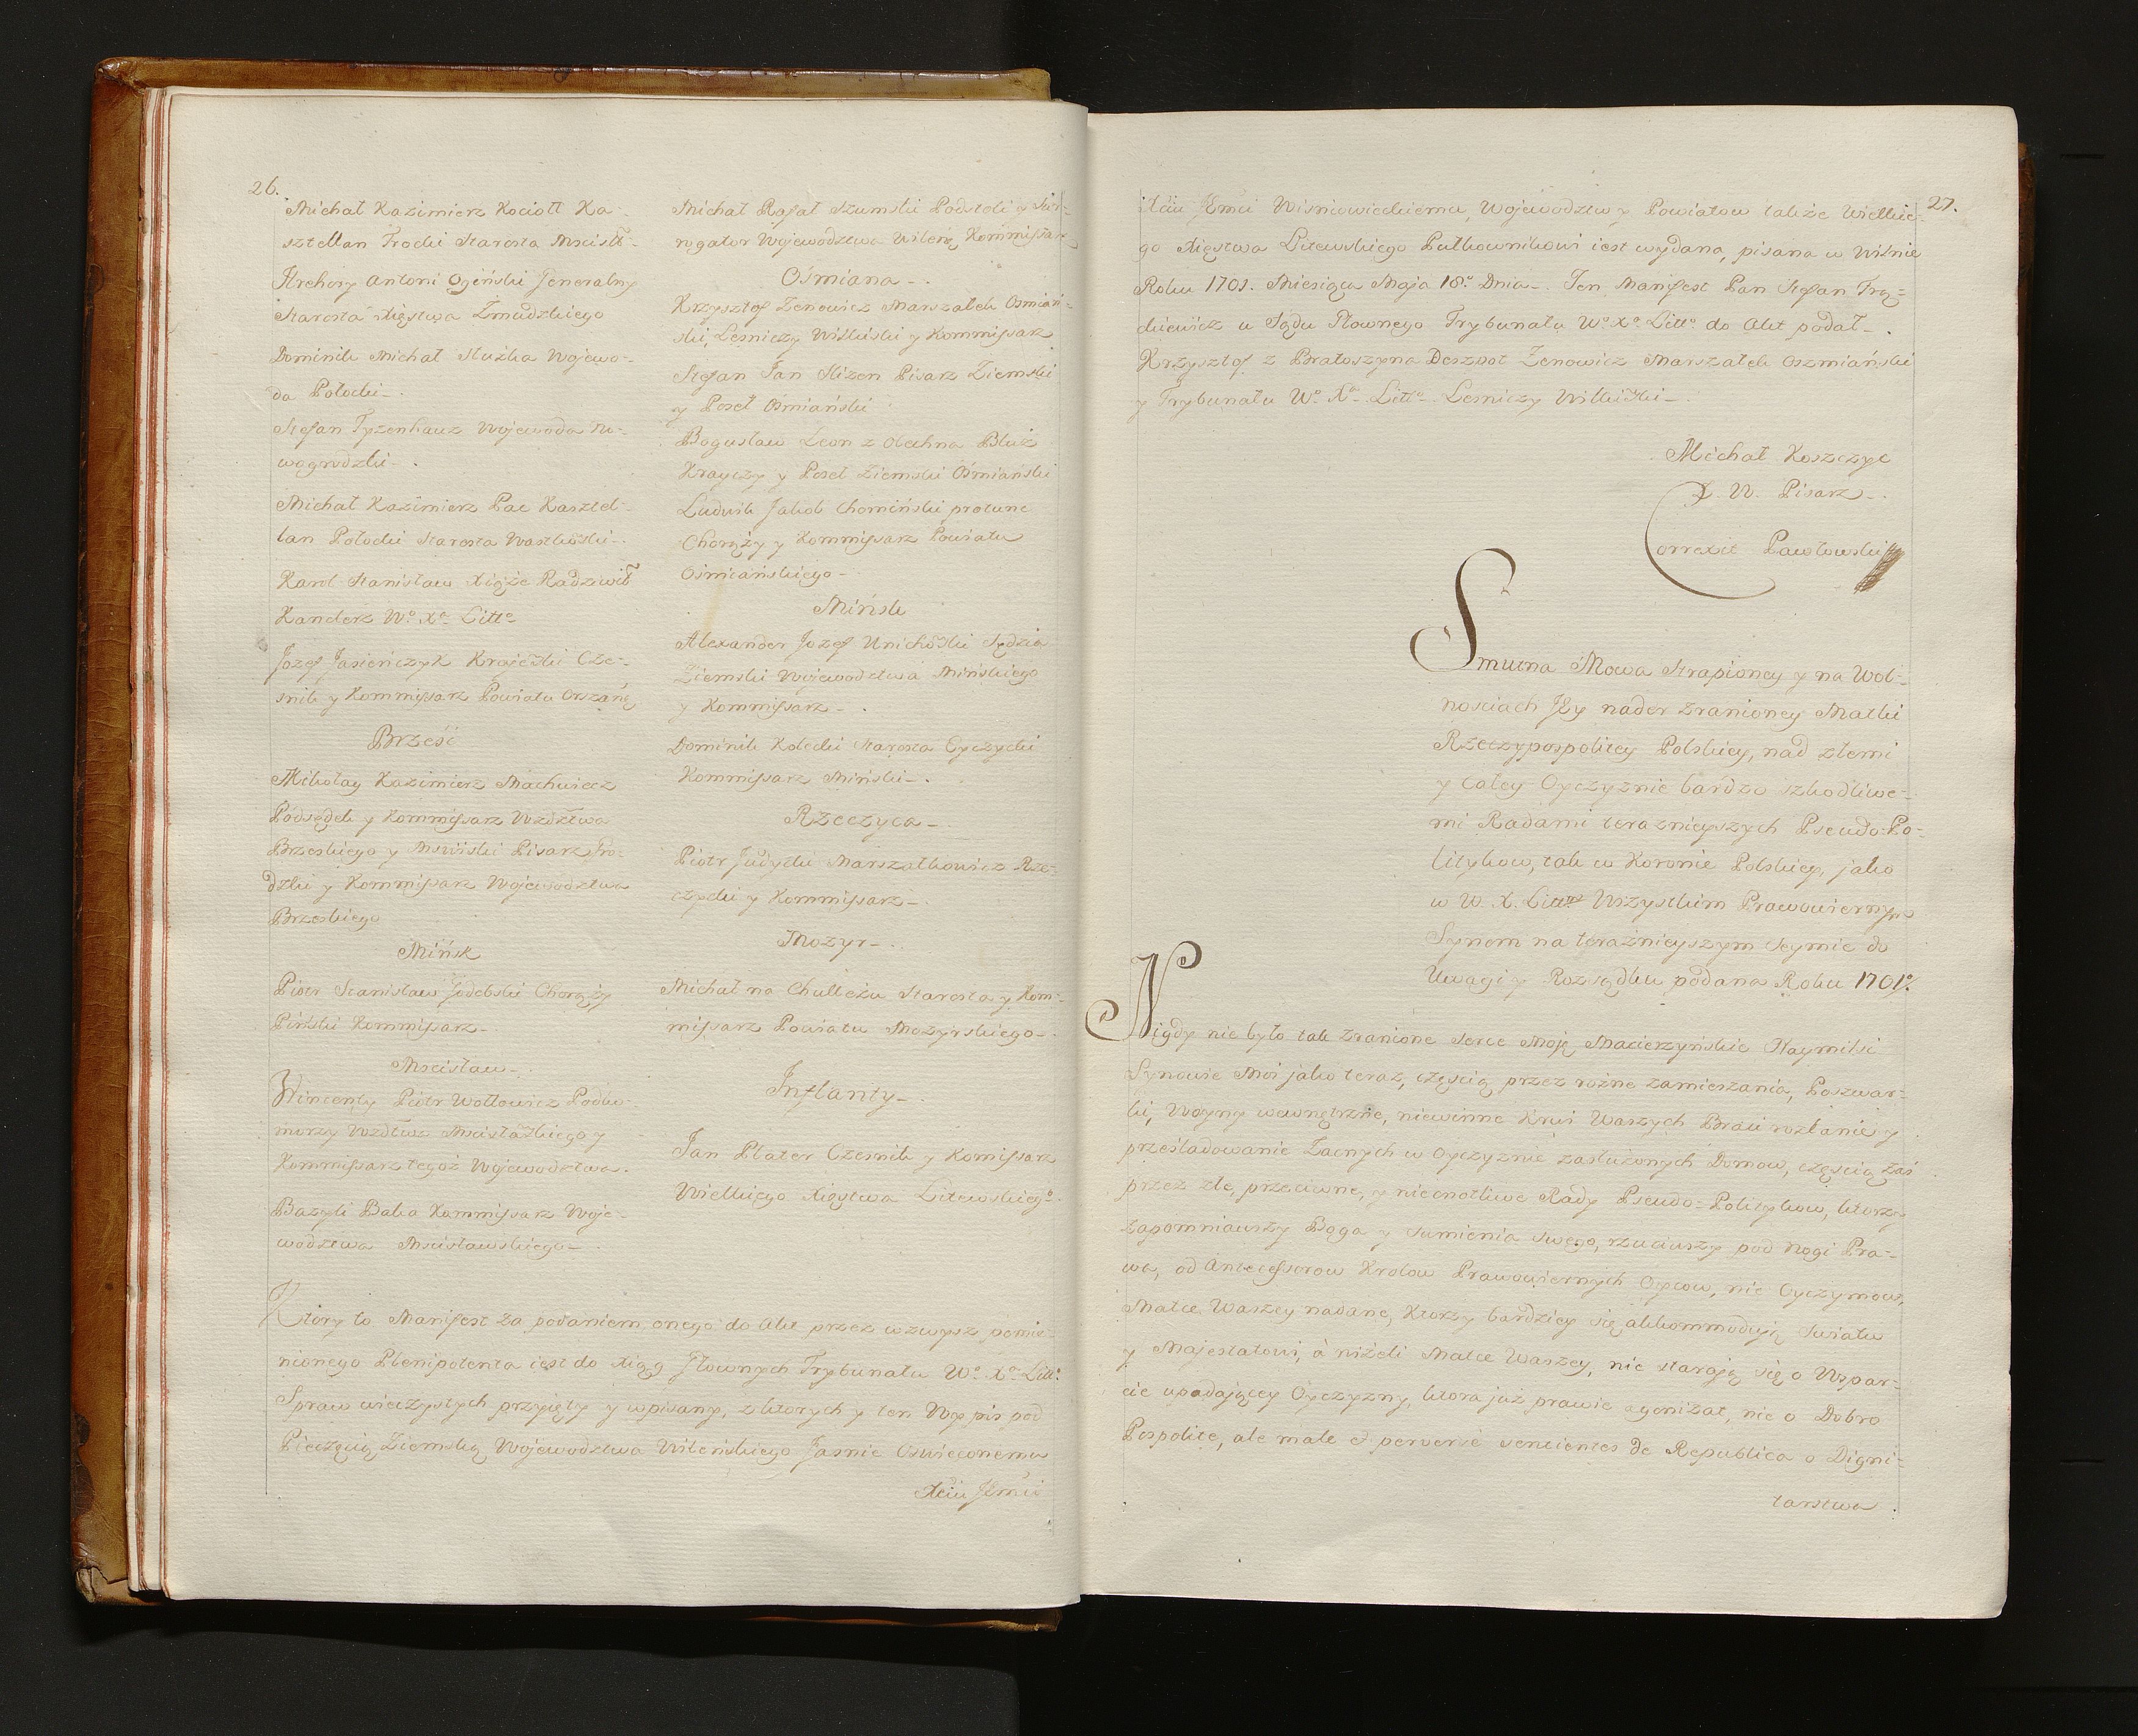 26.
Michał Kazimierz Kociołł Ka-
sztellan Trocki Starosta Mścisł-
Hrehory Antoni Ogiński Jeneralny
Starosta Xięstwa Żmudzkiego
Dominik Michał Słuźka Wojewo-
da Połocki-.
Stefan Tyzenhauz Wojewoda No-
wogrodzki-.
Michał Kazimierz Pac Kasztel-
lan Połocki Starosta
Karol Stanisław Xiąże Radziwił
Kanclerz Wo. Xa. Litto
Jozef Jasieńczyk Krajewski Cze-
snik y Kommissarz Powiatu Orszańg
Brześć
Mikołay Kazimierz Machwicz
Podsędek y Kommissarz Wzdztwa
Brzeskiego y Pisarz Gro-
dzki y Kommissarz Wojewodztwa
Brzeskiego
Mińsk
Piotr Stanisław Chorąży
Piński Kommissarz-
Mscisław-
Wincenty Piotr Wołłowicz Podko-
morzy Wzdtwa y
Kommissarz tegoż Wojewodztwa.
Bazyli Baka Kommissarz Woje-
wodztwa Mscisławskiego-
Michał Rafał Szumski Podstoli y Sur-
rogator Wojewodztwa Wileńg Kommissarz
Ośmiana-.
Krzysztof Zenowicz Marszałek Osmiań-
ski, Lesniczy Wilkiski y Kommissarz
Stefan Jan Slizen Pisarz Ziemski
y Poseł Ośmiański
Bogusław Leon z Olechna
Krayczy y Poseł Ziemski Ośmiański
Ludwik Jakob Chomiński protunc
Chorąży y Kommissarz Powiatu
Ośmiańskiego-
Mińsk
Alexander Jozef Unichowski Sędzia
Ziemski Wojewodztwa Mińskiego
y Kommissarz-.
Dominik Starosta
Kommissarz Miński-.
Rzeczyca-
Piotr Judycki Marszałkowicz Rze-
czycki y Kommissarz-.
Mozyr-.
Michał na Starosta y Kom-
missarz Powiatu Mozyrskiego-
Inflanty-.
Jan Plater Czesnik y Komissarz
Wielkiego Xięstwa Litewskiego.
Ktory to Manifest za podaniem onego do Akt przez wzwysz pomie-
nionego Plenipotenta iest do Xiąg Głownych Trybunału Wo. Xa. Litto.
Spraw wieczystych przyięty y wpisany, z ktorych y ten Wypis pod
Pieczęcią Ziemską Wojewodztwa Wileńskiego Jaśnie Oświeconemu
Xciu Jmci
27.
Xciu Jmci Wisniowieckiemu, Wojewodztw y Powiatow także Wielkie-
go Xięstwa Litewskiego Pułkownikowi iest wydana, pisana w Wilnie
Roku 1701. Miesiąca Maja 18o. Dnia-. Ten Manifest Pan Stefan Frą-
ckiewicz u Sądu Głownego Trybunału Wo. Xo. Litto. do Akt podał-.
Krzysztof z Bratoszyna Deszpot Zenowicz Marszałek Oszmiański
y Trybunału Wo. Xa. Litto. Lesniczy Wilkiski-.
Michał Koszczyc
Z. W. Pisarz-.
Correxit Pawłowski
Smutna Mowa Strapioney y na Wol-
nościach Jey nader zranioney Matki
Rzeczypospolitey Polskiey, nad złemi
y całey Oyczyznie bardzo szkodliwe-
mi Radami teraznieyszych Pseudo-Po-
litykow, tak w Koronie Polskiey, jako
w W. X. Litto Wszystkim Prawowiernym
Synom na teraźnieyszym Seymie do
Uwagi y Rozsądku podana Roku 1701o.
Nigdy nie było tak zranione Serce Moję Macierzyńskie Naymilsi
Synowie Moi jako teraz, częścią przez rożne zamieszania, Poszwar-
ki, Woyny wewnętrzne, niewinne Krwi Waszych Braci rozłanie y
prześladowanie Zacnych w Oyczyznie zasłużonych Domow, częścią zaś
przez złe, przeciwne, y niecnotliwe Rady Pseudo-Politykow, ktorzy
zapomniawszy Boga y Sumienia swego, rzuciwszy pod Nogi Pra-
wa, od Antecessorow Krolow Prawowiernych Oycow, nie Oyczymow,
Matce Waszey nadane, Ktorzy bardziey się akkommodują Swiatu
y Majestatowi, à niżeli Matce Waszey, nie starają się o Wspar-
cie upadającey Oyczyzny, ktora już prawie agonizat, nie o Dobro
Pospolite, ale male et perverse sencientes de Republica o Digni-
tarstwa